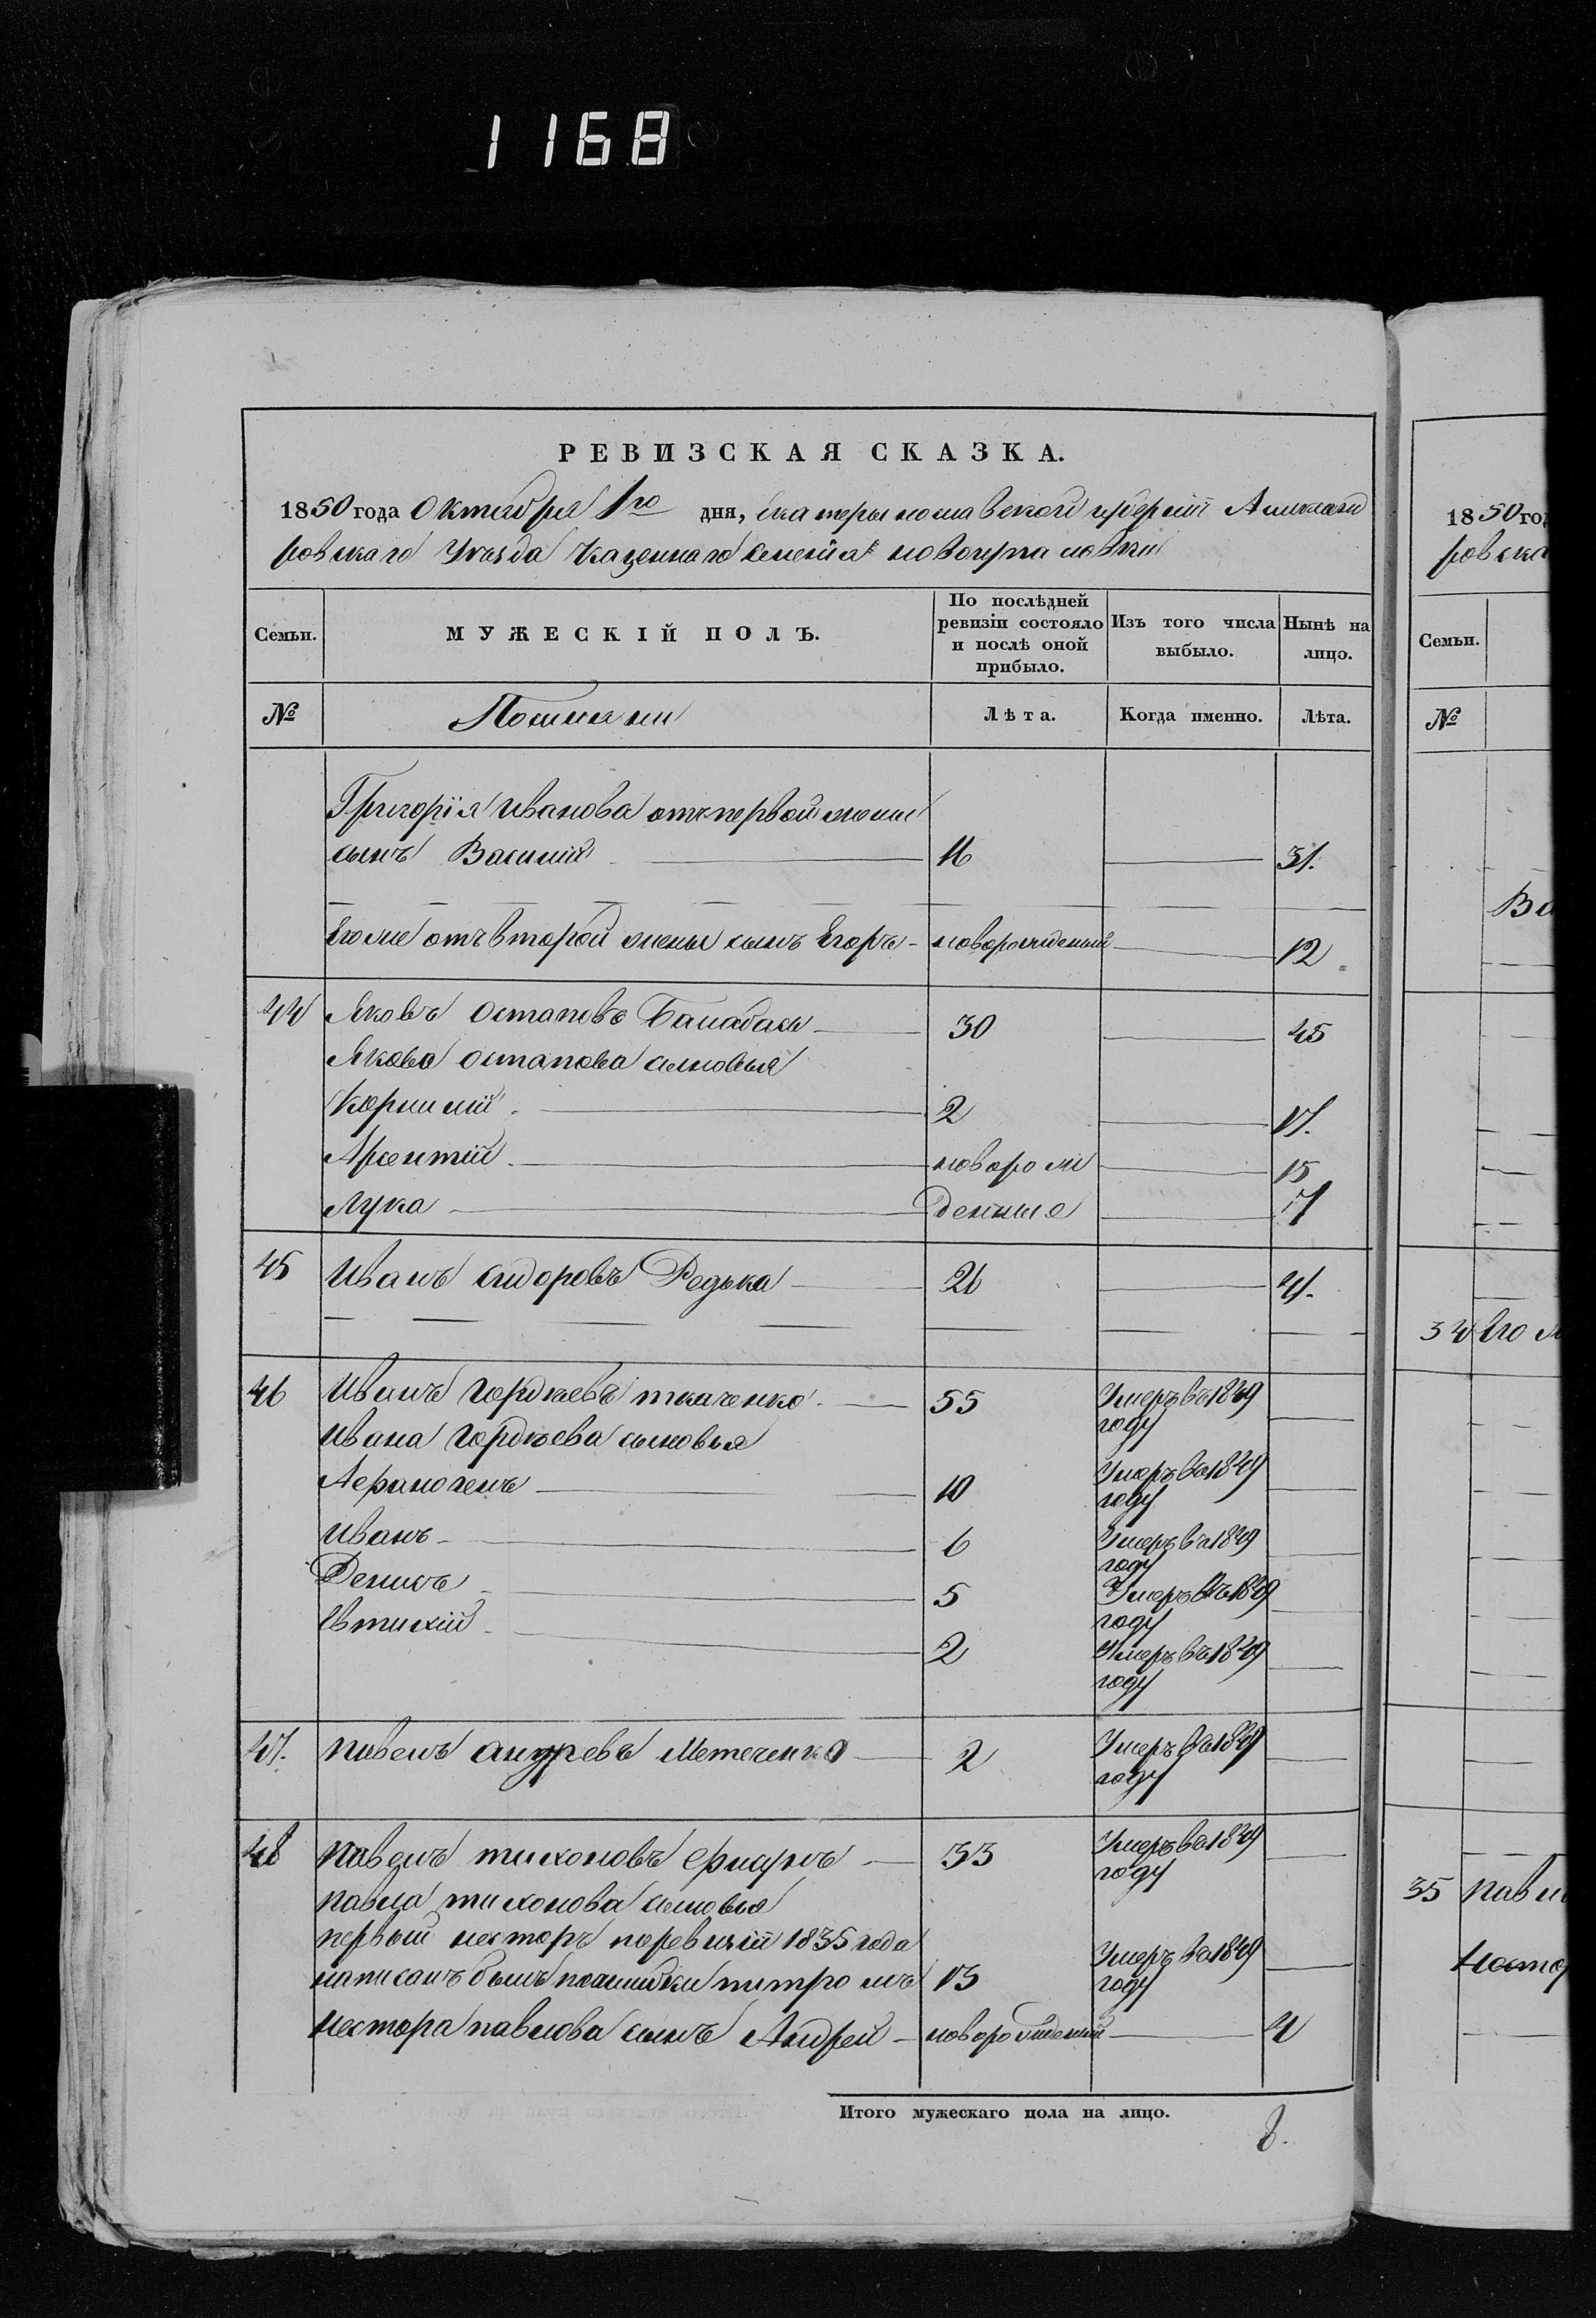 1168
РЕВИЗСКАЯ СКАЗКА.
1850 года Октября 1го дня, екатеринославской губернii Александ
ровскаго Уезда Казеннаго селенiя новоигнатовки
Семьи. МУЖЕСКІЙ ПОЛЪ. По послѣдней ревизіи состояло и послѣ оной прибыло. Изъ того числа выбыло. Нынѣ на лицо.
№ Лѣта. Когда именно. Лѣта.
Григорiя Иванова отъ первой жены
сынъ Василiй 16 31.
Его же отъ второй жены сынъ Егоръ новорожденый 12
44 Яковъ Остаповъ 30 45
Якова остапова сыновья
Корнилiй 2 17.
Арсентiй новорож 15
Лука денные 7
45 Иванъ сидоровъ Редька 26 41.
46 Иванъ Гордѣевъ ткаченко 55 Умеръ въ 1849 году
Ивана Гордѣева сыновья
Аѳиногенъ 10 Умеръ въ 1849 году
Иванъ 6 Умеръ въ 1849 году
Денисъ 5 Умеръ въ 1849 году
Евтихiй 2 Умеръ въ 1849 году
47. Павелъ андреевъ Метеченко 2 Умеръ въ 1849 году
48 Павелъ тихоновъ 33 Умеръ въ 1849 году
павла тихонова сыновья
первый несторъ поревизiи 1835 года
написанъ былъ поошибки митромъ 13 Умеръ въ 1849 году
нестора павлова сынъ Андрей новорожденый 4
Итого мужескаго пола на лицо. 8.
1850 год
ровска
Семьи.
№
Ва
34 Его ж
35 Павл
Несто